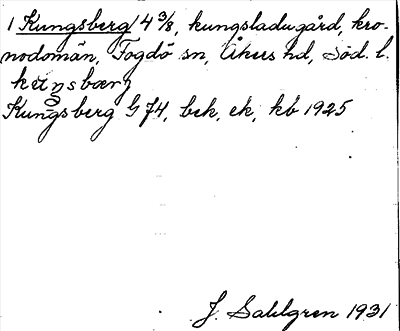 1 Kungsberg 4 3/8, kungsladugård, kro-
nodomän, Fogdö sn, Åkers hd, Söd. l.
kuŋsbærj
Kungsberg G 74, bek, ek, kb 1925
J. Sahlgren 1931